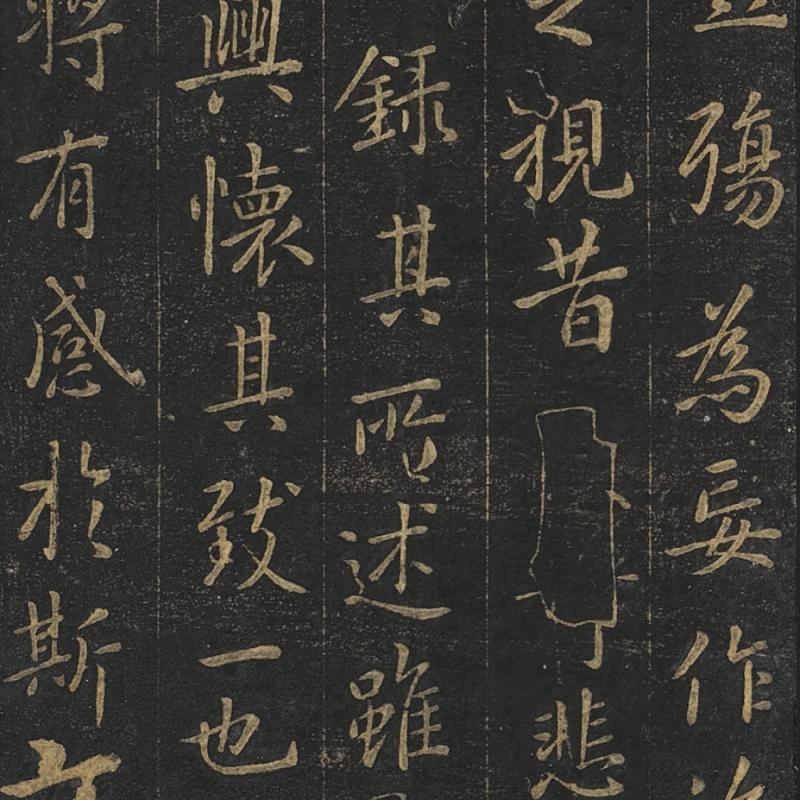 殤為妄作
之視昔悲
錄其所述雖
興懷其致一也
將有感於斯文